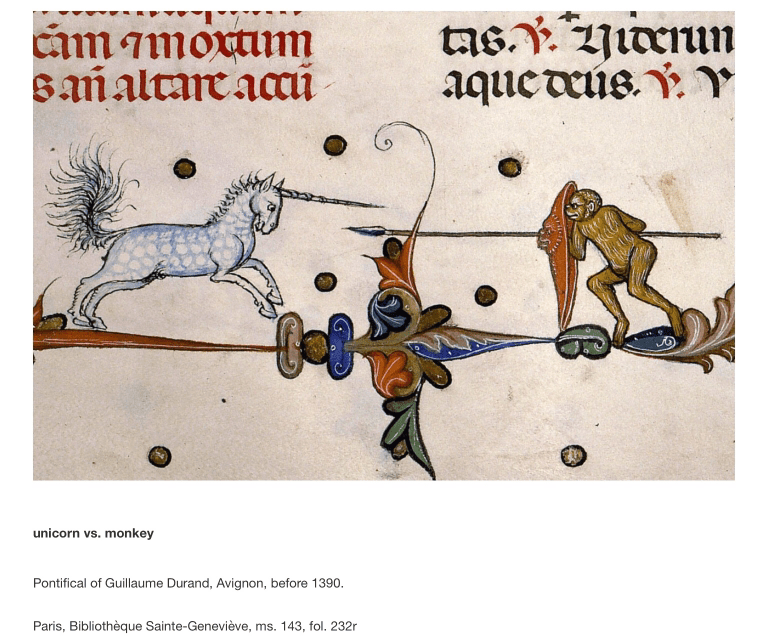 cam ⁊ moxtim
s añ altare accu
tas. ℣. Viderun
aque deus. ℣. V
unicorn vs. monkey
Pontifical of Guillaume Durand, Avignon, before 1390.
Paris, Bibliothèque Sainte-Geneviève, ms. 143, fol. 232r